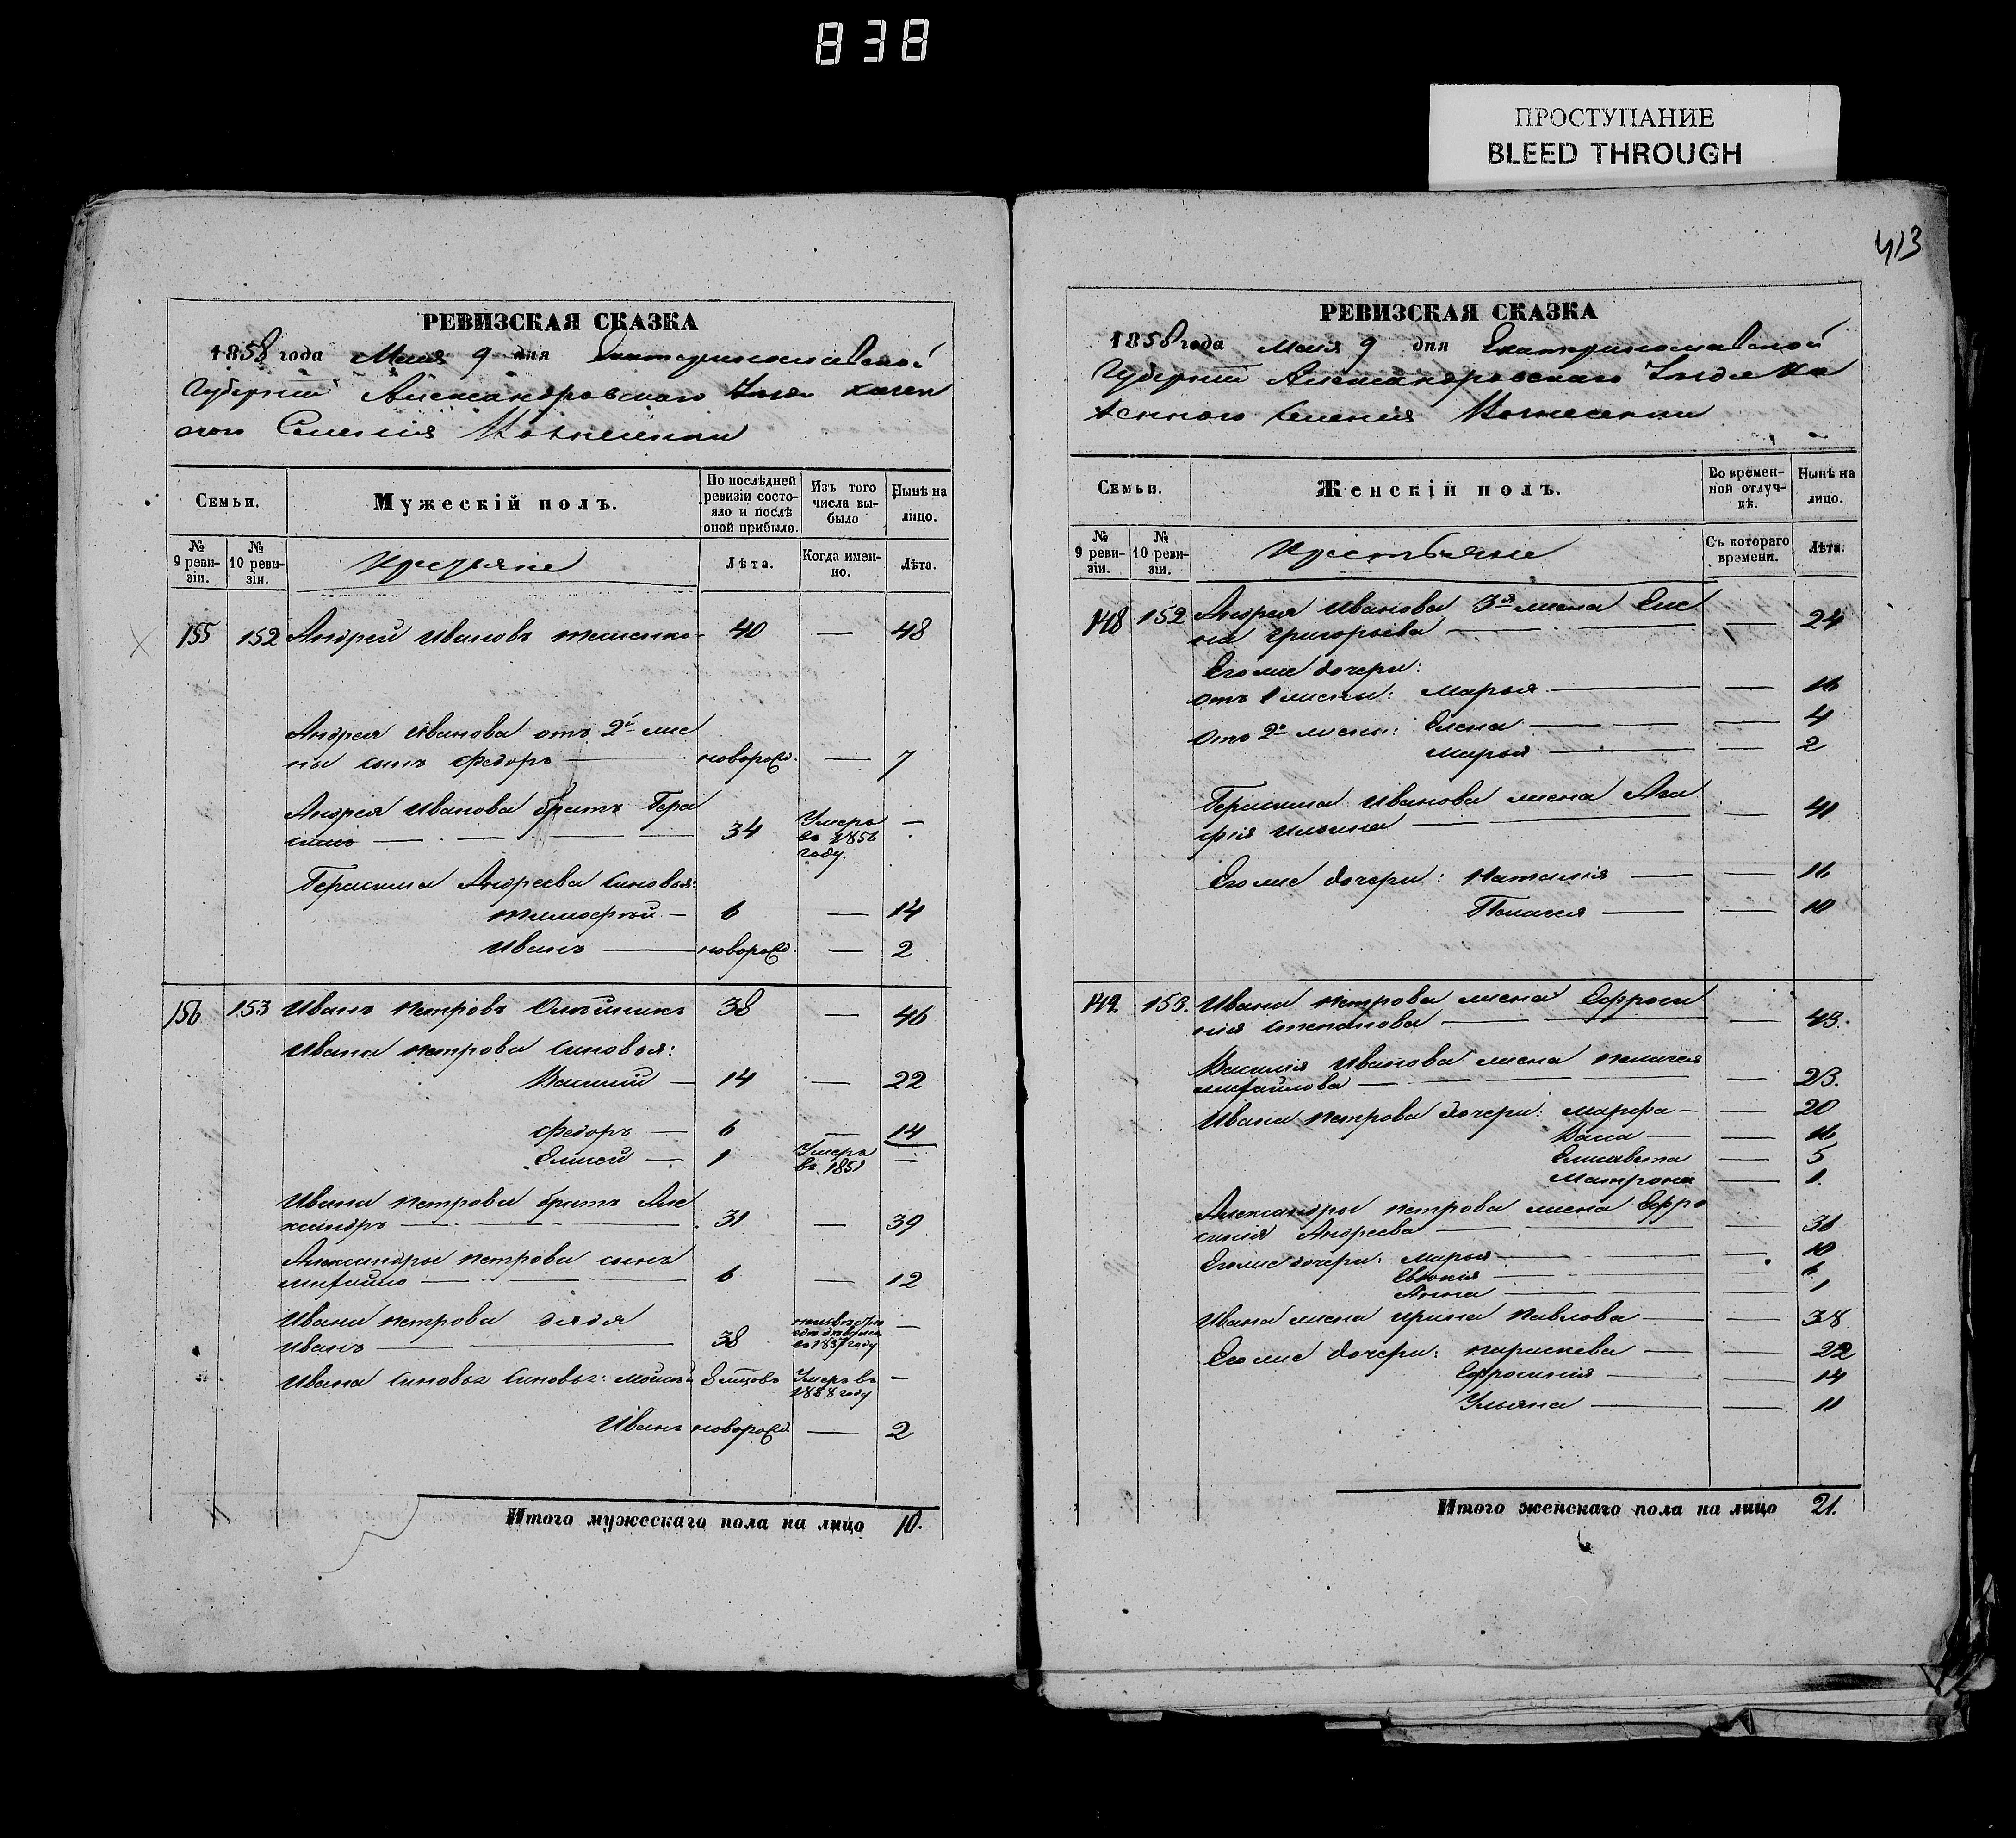 838
ПРОСТУПАНИЕ
BLEED THROUGH
413
РЕВИЗСКАЯ СКАЗКА
1858 года Мая 9 дня Екатеринославской
Губернии Александровскаго Уезда казен
наго Селения Вознесенки
Семьи.
Мужескій полъ.
По послѣдней ревизіи состояло и послѣ оной прибыло.
Изъ того числа выбыло
Нынѣ на лицо.
№ 9 ревизіи.
№ 10 ревизіи.
Крестьяне
Лѣта.
Когда именно.
Лѣта.
155 152 Андрей Ивановъ 40 — 48
Андрея Иванова отъ 2й же
ны сынъ Федоръ — новорожд. — 7
Андрея Иванова братъ Гера
симъ — 34 Умеръ въ 1856 году. —
Герасима Андреева сыновья:
Тимофѣй — 6 — 14
Иванъ — новорожд. — 2
156 153 Иванъ Петровъ Олѣйникъ 38 — 46
Ивана Петрова сыновья:
Василий — 14 — 22
Федоръ — 6 — 14
Елисей — 1 Умеръ въ 1851 —
Ивана Петрова братъ Але
ксандръ — 31 — 39
Александры Петрова сынъ
Михайло — 6 — 12
Ивана Петрова дядя
Иванъ — 38 въ 1857 году —
Ивана сыновья: Моисѣй 8 мцовъ Умеръ въ 1858 году —
Иванъ новорожд. — 2
Итого мужескаго пола на лицо 10.
РЕВИЗСКАЯ СКАЗКА
1858 года Мая 9 дня Екатеринославской
Губернии Александровскаго Уезда Ка
зеннаго Селения Вознесенки
Семьи.
Женскій полъ.
Во временной отлучкѣ.
Нынѣ на лицо.
№ 9 ревизіи.
№ 10 ревизіи.
Крестьяне
Съ котораго времени.
Лѣта.
148 152 Андрея Иванова 3я жена Еле
на Григорьева — — 24
Его же дочери:
отъ 1 жены: Марья — — 16
отъ 2й жены: Елена — — 4
Марья — — 2
Герасима Иванова жена Ага
фія Ильина — — 41
Его же дочери: Наталия — — 16
Пелагея — — 10
149. 153. Ивана Петрова жена Ефроси
нія Степанова — — 43.
Василія Иванова жена Пелагея
Михайлова — — 23.
Ивана Петрова дочери: Марфа — — 20
Васса — — 16
Елисавета — 5
Матрона — 1.
Александры Петрова жена Ефро
синія Андреева — — 36
Его же дочери: Марья — — 10
Евдокія — — 6
Анна — — 1
Ивана жена Ирина Павлова — — 38
Его же дочери: Параскева — — 22
Ефросинія — — 14
Ульяна — — 11
Итого женскаго пола на лицо 21.